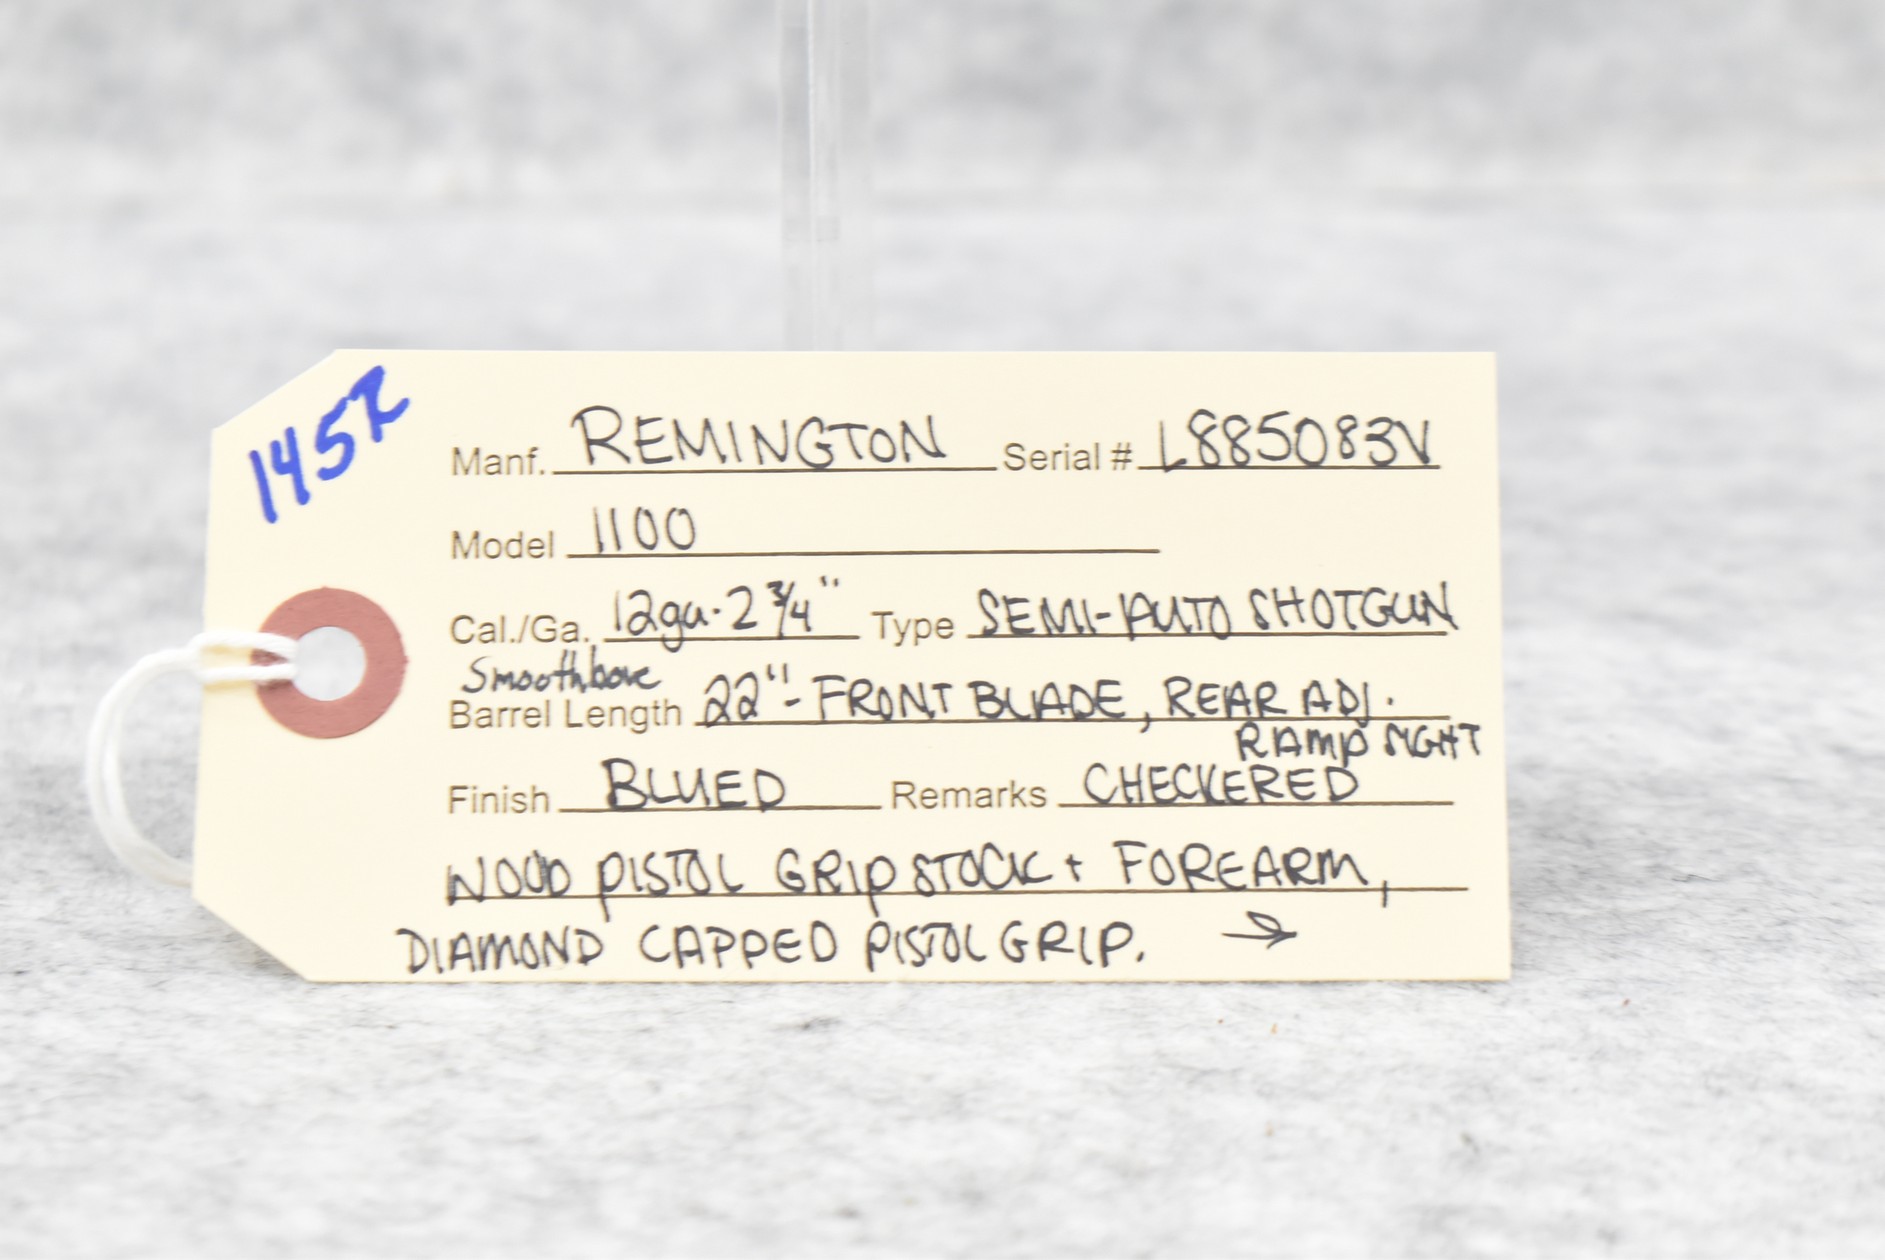 1452
Manf. REMINGTON Serial # L885083V
Model 1100
Cal./Ga. 12ga. 2 3/4" Type SEMI-AUTO SHOTGUN
Smoothbore
Barrel Length 22" - FRONT BLADE, REAR ADJ.
RAMP SIGHT
Finish BLUED Remarks CHECKERED
WOOD PISTOL GRIP STOCK + FOREARM,
DIAMOND CAPPED PISTOL GRIP. →